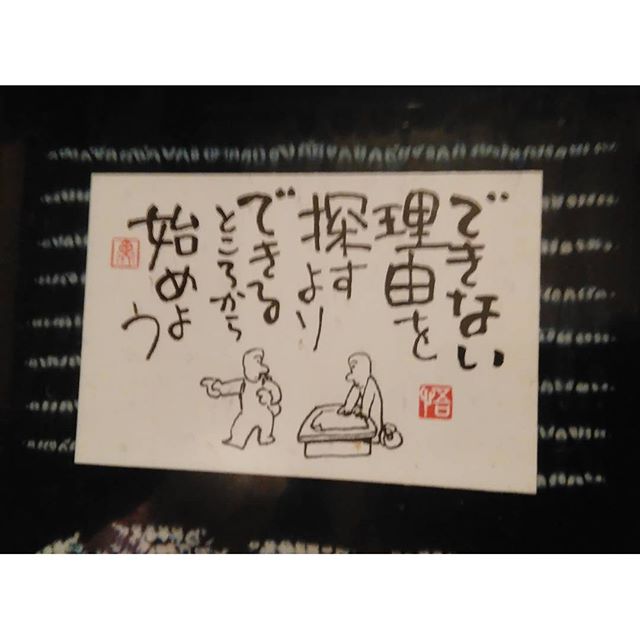 できない
理由を
探すより
できる
ところから
始めよう
悟